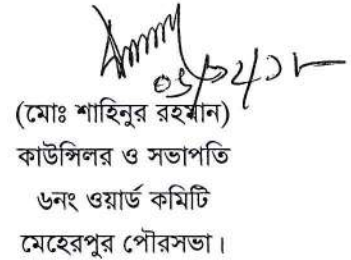 (মোঃ শাহিনুর রহমান)
কাউন্সিলর ও সভাপতি
৬নং ওয়ার্ড কমিটি
মেহেরপুর পৌরসভা।